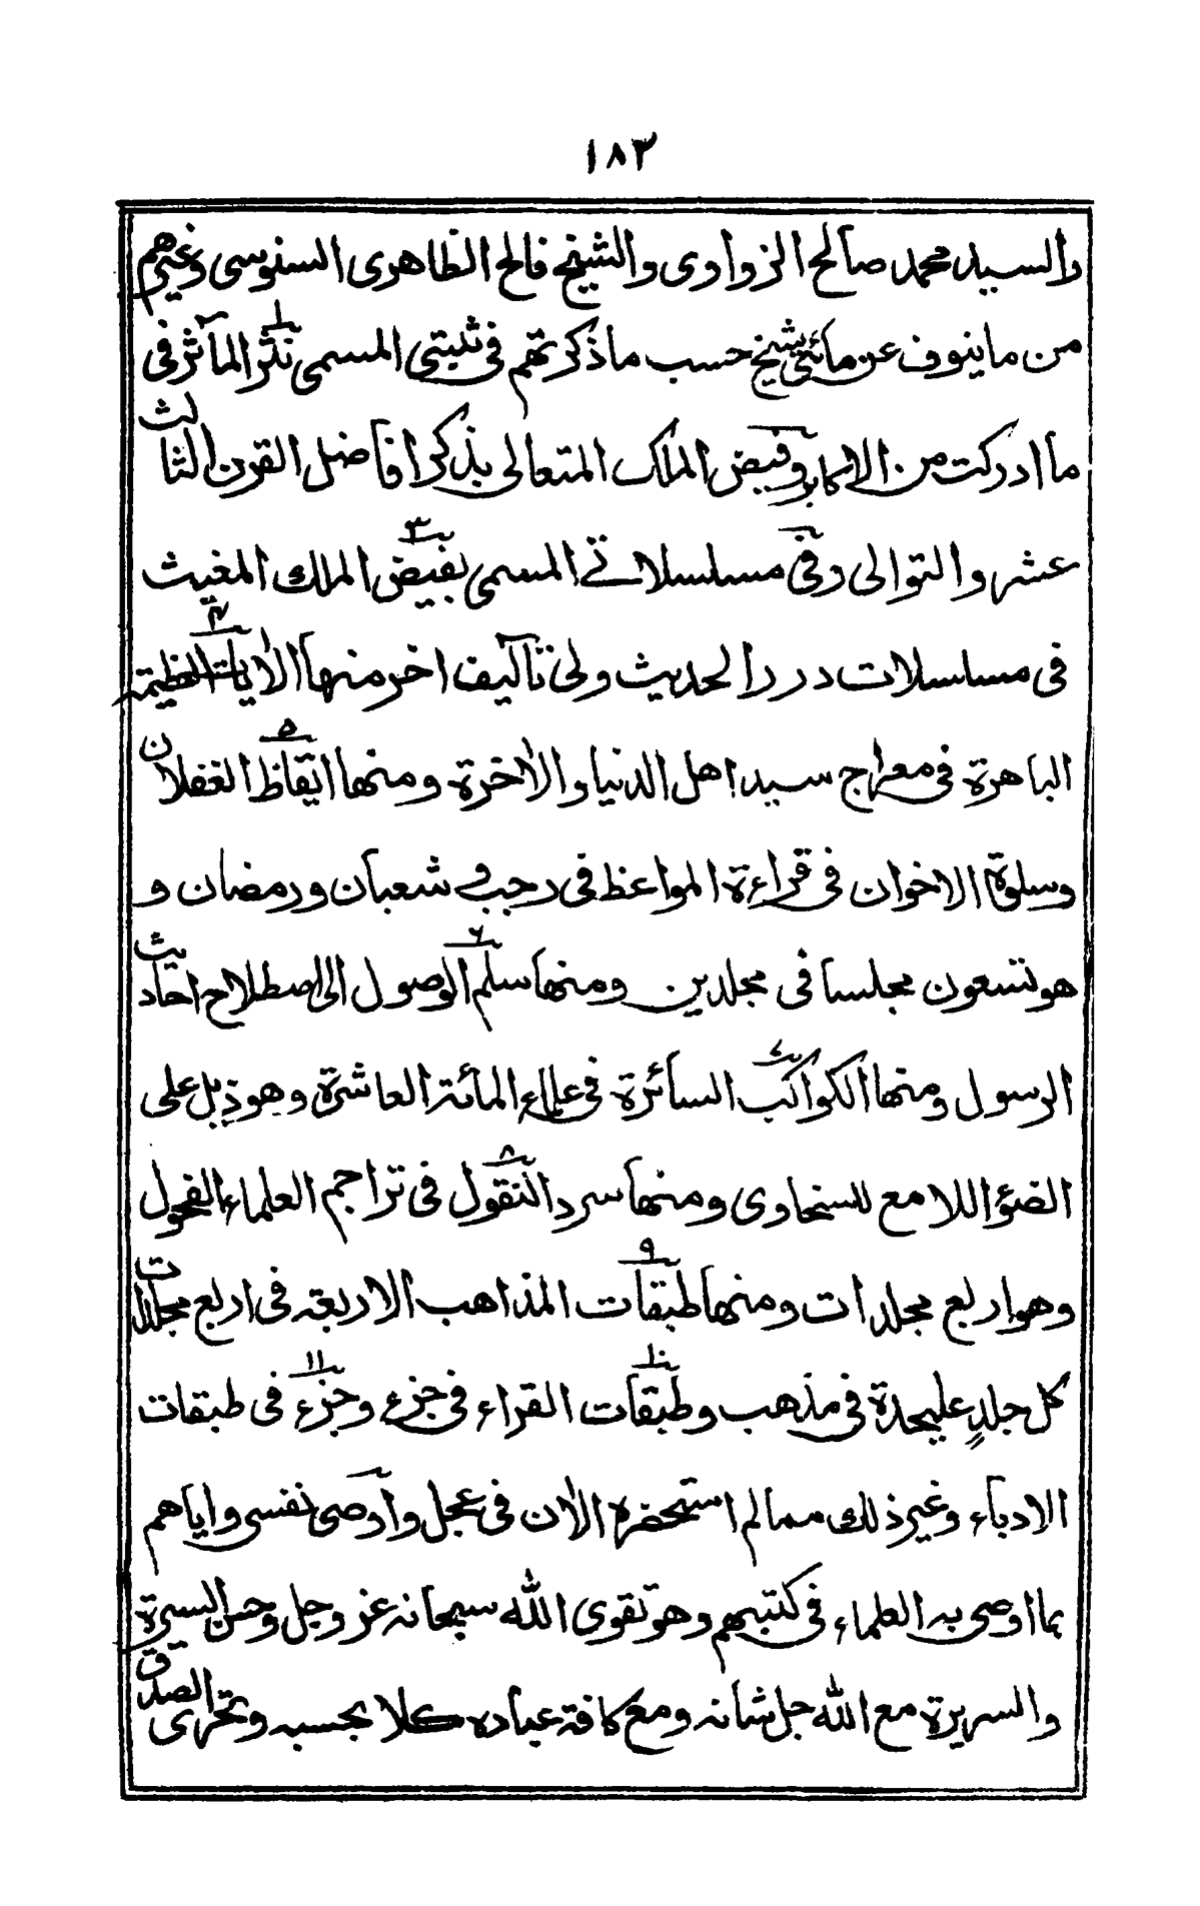 ١٨٣
والسيد محمد صالح الزواوى والشيخ فالح الظاهرى السنوسى وغيرهم
من ما ينوف عن مائتى شيخ حسب ما ذكرتهم فى ثبتى المسمى نثر المآثر فى
ما ادركت من الاكابر وفيض الملك المتعالى بذكر افاضل القرن الثالث
عشر والتوالى وفى مسلسلاتے المسمى بفيض الملك المغيث
فى مسلسلات درر الحديث ولى تآليف اخر منها الآيات العظيمة
الباهرة فى معراج سيد اهل الدنيا والآخرة ومنها ايقاظ الغفلان
وسلوة الاخوان فى قراءة المواعظ فى رجب و شعبان ورمضان و
هو تسعون مجلسا فى مجلدين ومنها سلم الوصول الى اصطلاح احاديث
الرسول ومنها الكواكب السائرة فى علماء المائة العاشرة وهو ذيل على
الضؤ اللامع للسخاوى ومنها سرد النقول فى تراجم العلماء الفحول
وهو اربع مجلدات ومنها طبقات المذاهب الاربعة فى اربع مجلدات
كل جلدٍ عليحدة فى مذهب وطبقات القراء فى جزء وجزء فى طبقات
الادباء وغير ذلك مما لم استحضره الآن فى عجل واوصى نفسى واياهم
بما اوصى به العلماء فى كتبهم وهو تقوى الله سبحانه عز وجل وحسن السيرة
والسريرة مع الله جل شانه ومع كافة عباده كلا بحسبه وتحرى الصدق